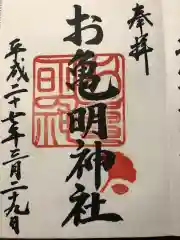 奉拝
お亀明神社
平成二十七年三月二十九日